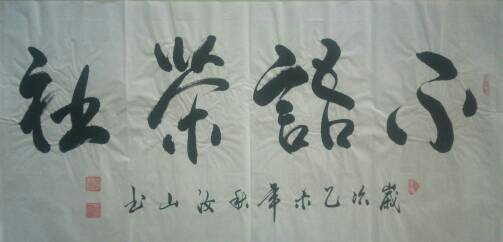 不語茶社
歲次乙未年秋汝山书